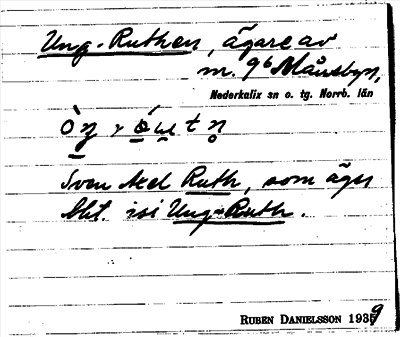 Ung-Ruthen, ägare av
m. 9⁶ Månsbyn,
Nederkalix sn o. tg. Norrb. län
Sven Axel Ruth, som äger
hkt. isi Ung-Ruth.
RUBEN DANIELSSON 1939